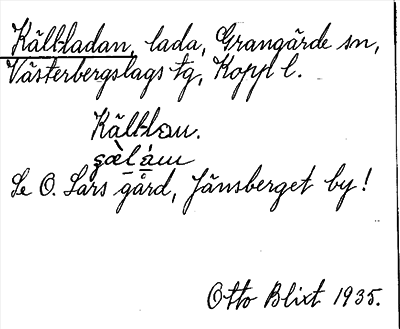 Källladan, lada, Grangärde sn,
Västerbergslags tg, Kopp l.
Källlan.
Se O. Lars gård, Jänsberget by!
Otto Blixt 1935.